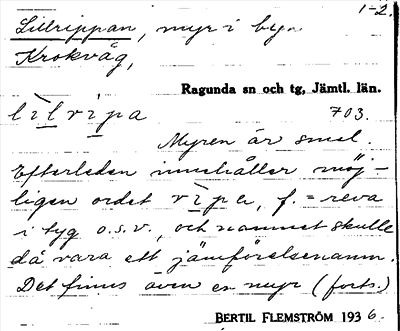 1-2.
Lillrippan, myr i byn
Krokvåg,
Ragunda sn och tg, Jämtl. län.
lìlvipa 703.
Myren är smal.
Efterleden innehåller möj-
ligen ordet vìpa, f. = reva
i tyg o.s.v., och namnet skulle
då vara ett jämförelsenamn.
Det finns även en myr (forts.)
BERTIL FLEMSTRÖM 1936.